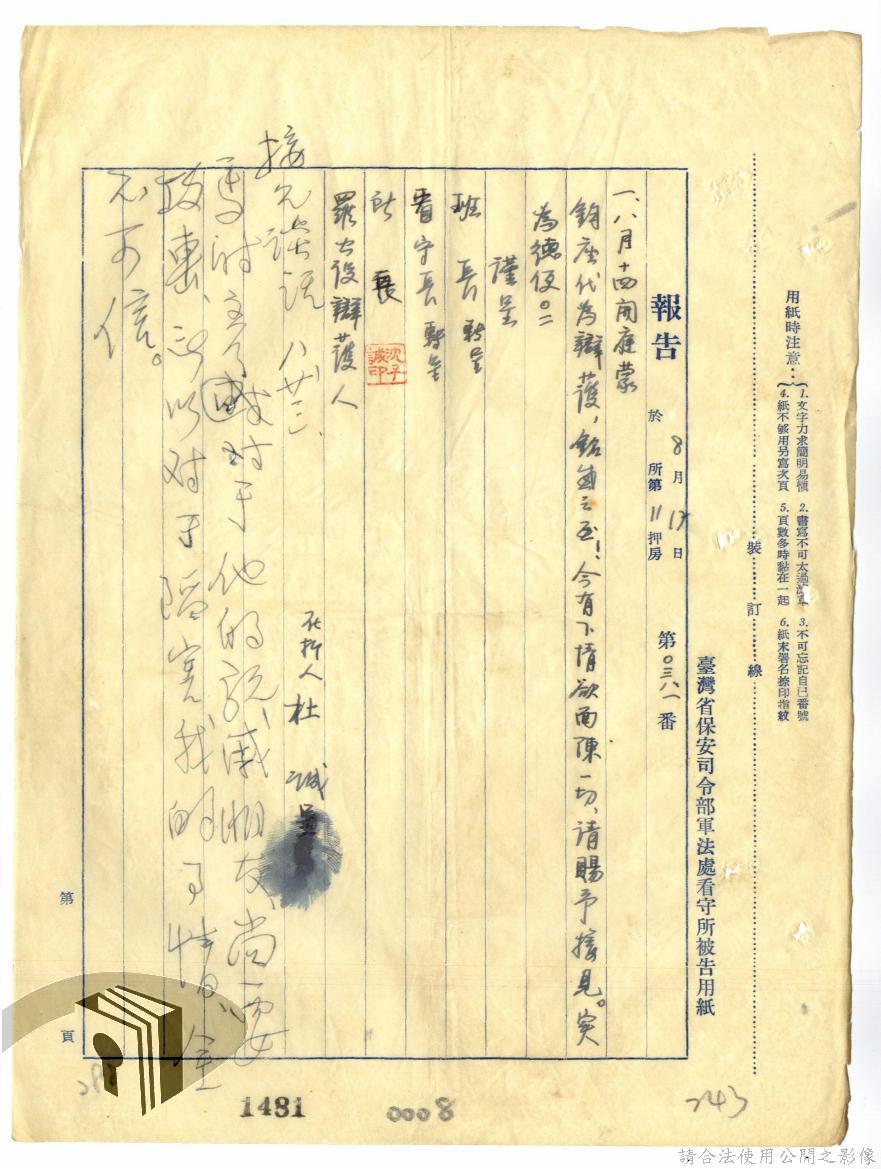 用紙時注意：
1. 文字力求簡明易懂 2. 書寫不可太過潦草 3. 不可忘記自己番號
4. 紙不够用另寫次頁 5. 頁數多時黏在一起 6. 紙末署名捺印指紋
裝訂線
臺灣省保安司令部軍法處看守所被告用紙
報告 於 8月17日 所第11押房 第〇三八一番
一、八月十四開庭蒙
鈞座代為辯護，銘感之至！今有下情欲面陳一切、請賜予接見。实
為德便。
謹呈
班長 轉呈
看守長 轉呈
所長
沈子誠印
羅古设辯護人
在押人 杜 诚 呈
接见談話 八廿三、
对于他的親戚朋友尚要
所以对于 我的事情、全
不可信。
第 頁
1481
0008
243
請合法使用公開之影像